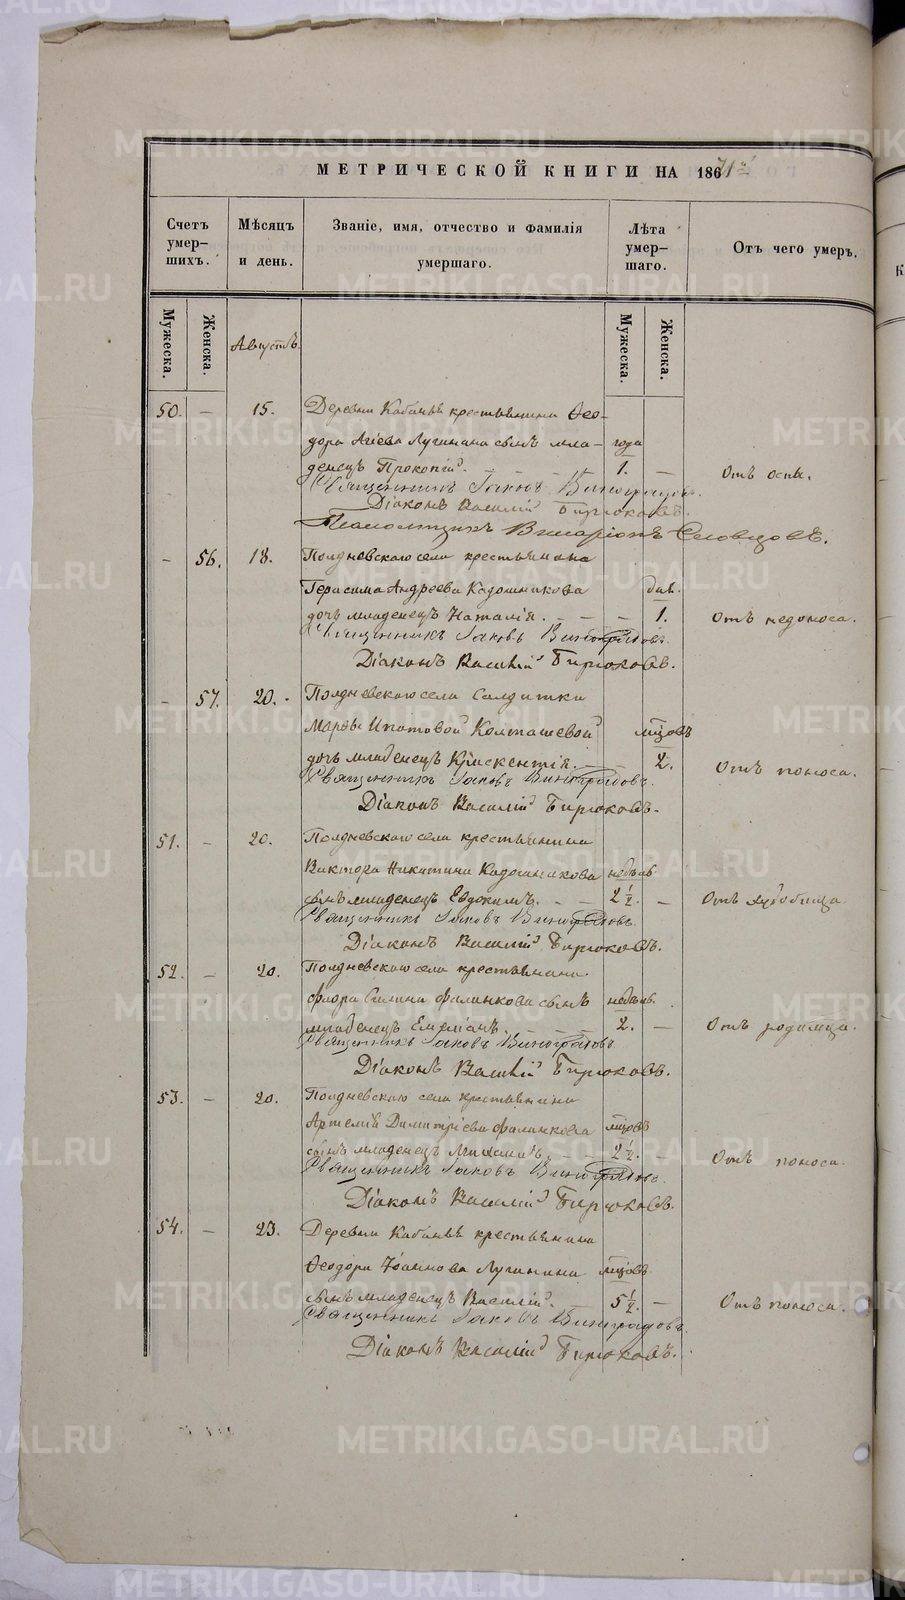 МЕТРИЧЕСКОЙ КНИГИ НА 1871й
Счетъ умер-шихъ.
Мѣсяцъ и день.
Званіе, имя, отчество и фамилія умершаго.
Лѣта умер-шаго.
Отъ чего умеръ.
Мужеска.
Женска.
Мужеска.
Женска.
Августъ.
50. – 15. Деревни Кабанъ крестьянина Ѳео-
дора Агіева Лугинина сынъ мла- года
денецъ Прокопій. – – – 1. – Отъ оспы.
Священникъ Іаковъ Виноградовъ.
Діаконъ Василій Бирюковъ.
Псаломщикъ Виссаріонъ Словцовъ.
– 56. 18. Полдневскаго села крестьянина
Герасима Андреева Кадошникова дня.
дочь младенецъ Наталія. – – – 1. Отъ недоноса.
Священникъ Іаковъ Виноградовъ.
Діаконъ Василій Бирюковъ.
– 57. 20. Полдневскаго села солдатки
Марѳы Ипатовой Колташевой мцовъ
дочь младенецъ Крискентія. – – 2. Отъ поноса.
Священникъ Іаковъ Виноградовъ.
Діаконъ Василій Бирюковъ.
51. – 20. Полдневскаго села крестьянина
Виктора Никитина Кадошникова недѣль
сынъ младенецъ Евдокимъ. – – 2½ – Отъ
Священникъ Іаковъ Виноградовъ
Діаконъ Василій Бирюковъ.
52. – 20. Полдневскаго села крестьянина
Флора Силина Фалинкова сынъ недѣль
младенецъ Емеліанъ. – – – 2. – Отъ родимца.
Священникъ Іаковъ Виноградовъ
Діаконъ Василій Бирюковъ.
53. – 20. Полдневскаго села крестьянина
Артемія Димитріева Фалинкова мцовъ
сынъ младенецъ – 2½ – Отъ поноса.
Священникъ Іаковъ Виноградовъ.
Діаконъ Василій Бирюковъ.
54. – 23. Деревни Кабанъ крестьянина
Ѳеодора Іоаннова Лугинина мцовъ
сынъ младенецъ Василій. – 5½ – Отъ поноса.
Священникъ Іаковъ Виноградовъ.
Діаконъ Василій Бирюковъ.
К
METRIKI.GASO-URAL.RU